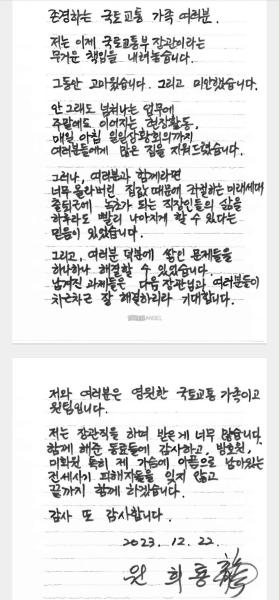 존경하는 국토교통 가족 여러분.
저는 이제 국토교통부 장관이라는
무거운 책임을 내려놓습니다.
그동안 고마웠습니다. 그리고 미안했습니다.
안 그래도 넘쳐나는 업무에
주말에도 이어지는 현장활동,
매일 아침 일일상황회의까지
여러분들에게 많은 짐을 지워드렸습니다.
그러나, 여러분과 함께라면
너무 올라버린 집값 때문에 좌절하는 미래세대
출퇴근에 녹초가 되는 직장인들의 삶을
하루라도 빨리 나아지게 할 수 있다는
믿음이 있었습니다.
그리고, 여러분 덕분에 쌓인 문제들을
하나하나 해결할 수 있었습니다.
남겨진 과제들은 다음 장관님과 여러분들이
차근차근 잘 해결하리라 기대합니다.
ANGEL
저와 여러분은 영원한 국토교통 가족이고
원팀입니다.
저는 장관직을 하며 받은게 너무 많습니다.
함께 해준 동료들에 감사하고, 방호원,
미화원 특히 제 가슴에 아픔으로 남아있는
전세사기 피해자들을 잊지 않고
끝까지 함께 하겠습니다.
감사 또 감사합니다.
2023. 12. 22.
원 희 룡